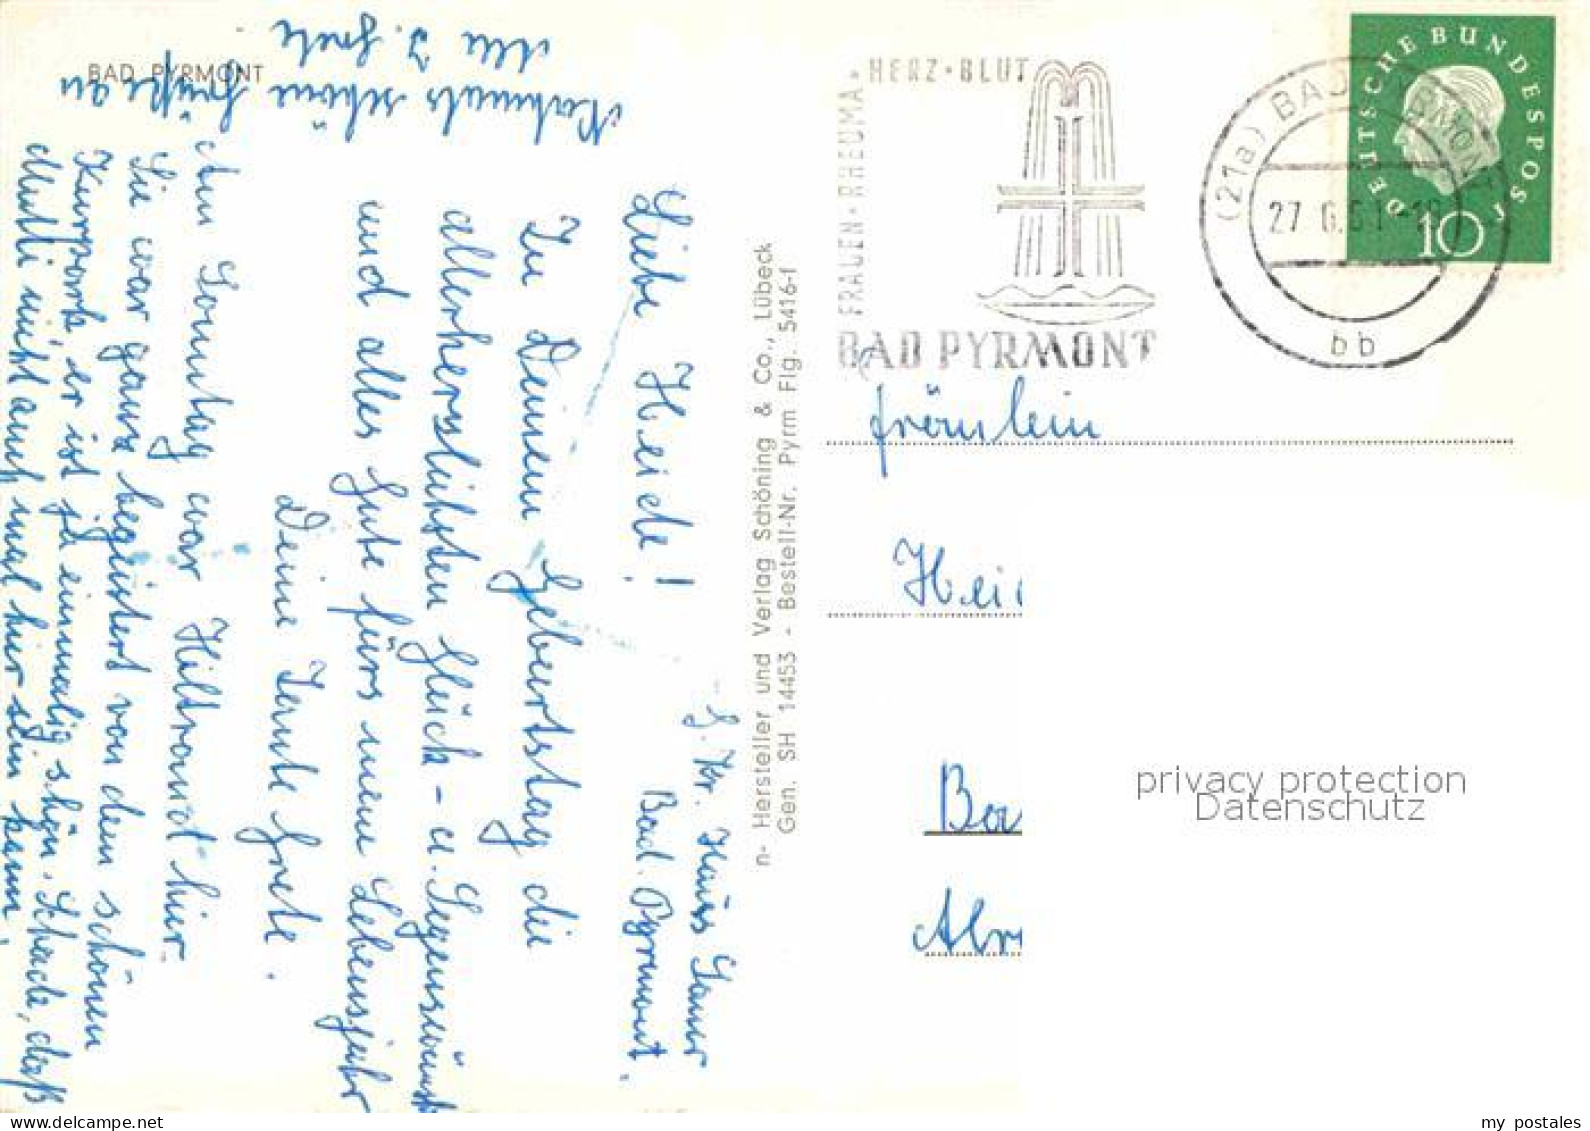 BAD PYRMONT
HERZ · BLUT
FRAUEN · RHEUMA ·
BAD PYRMONT
(21a) BAD PYRMONT
27.6.61
bb
DEUTSCHE BUNDESPOST
10
Bad Pyrmont.
Liebe Heide!
Zu Deinem Geburtstag die
allerherzlichsten Glück- u. Segenswünsche
und alles Gute fürs neue Lebensjahr
Deine Tante Grete.
Am Sonntag war Hiltraud hier.
Sie war ganz begeistert von dem schönen
Kurpark, er ist ja einmalig schön. Schade, daß
Mutti nicht auch mal hier sein kann.
Nochmals schöne Grüße an
alle T. Grete
n- Hersteller und Verlag Schöning & Co., Lübeck
Gen. SH 14453 - Bestell-Nr. Pyrm Flg. 5416-1
Fräulein
Hei
privacy protection
Datenschutz
my postales